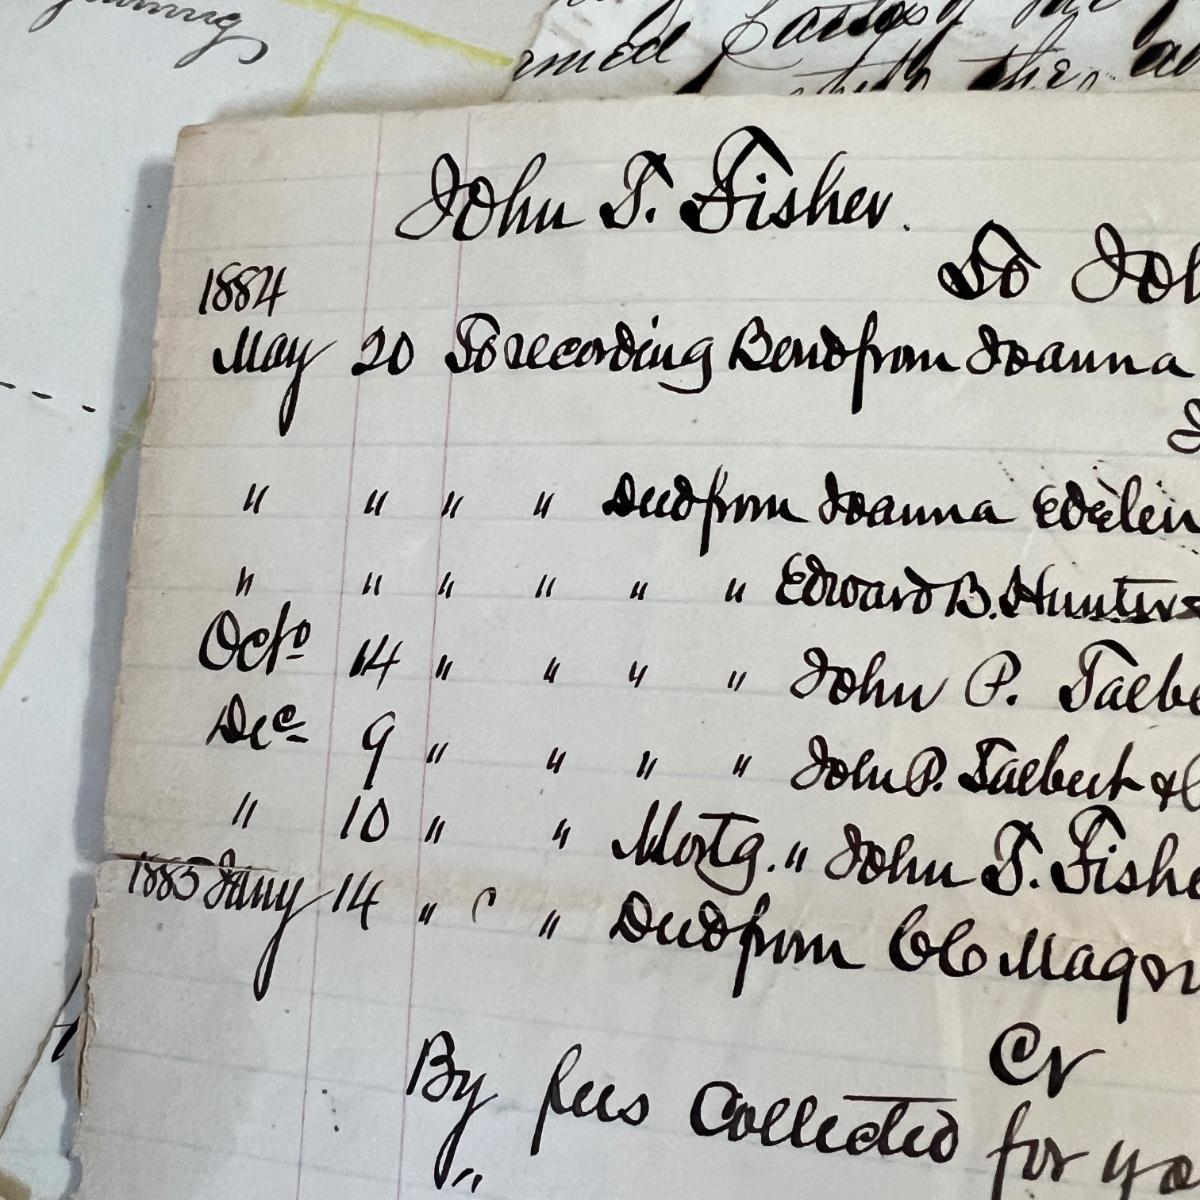 rmed
with the
John T. Fisher.
To Joh
1884
May 20 To recording Bond from Joanna
" " " " Deed from Joanna Edelin
" " " " " " Edward B. Hunter
Octo 14 " " " " John P. Talbe
Dec 9 " " " " John P. Talbert &
" 10 " " Mortg. " John T. Fishe
1885 Jany 14 " " Deed from CC Magr
Cr
By fees Collected for yo
"